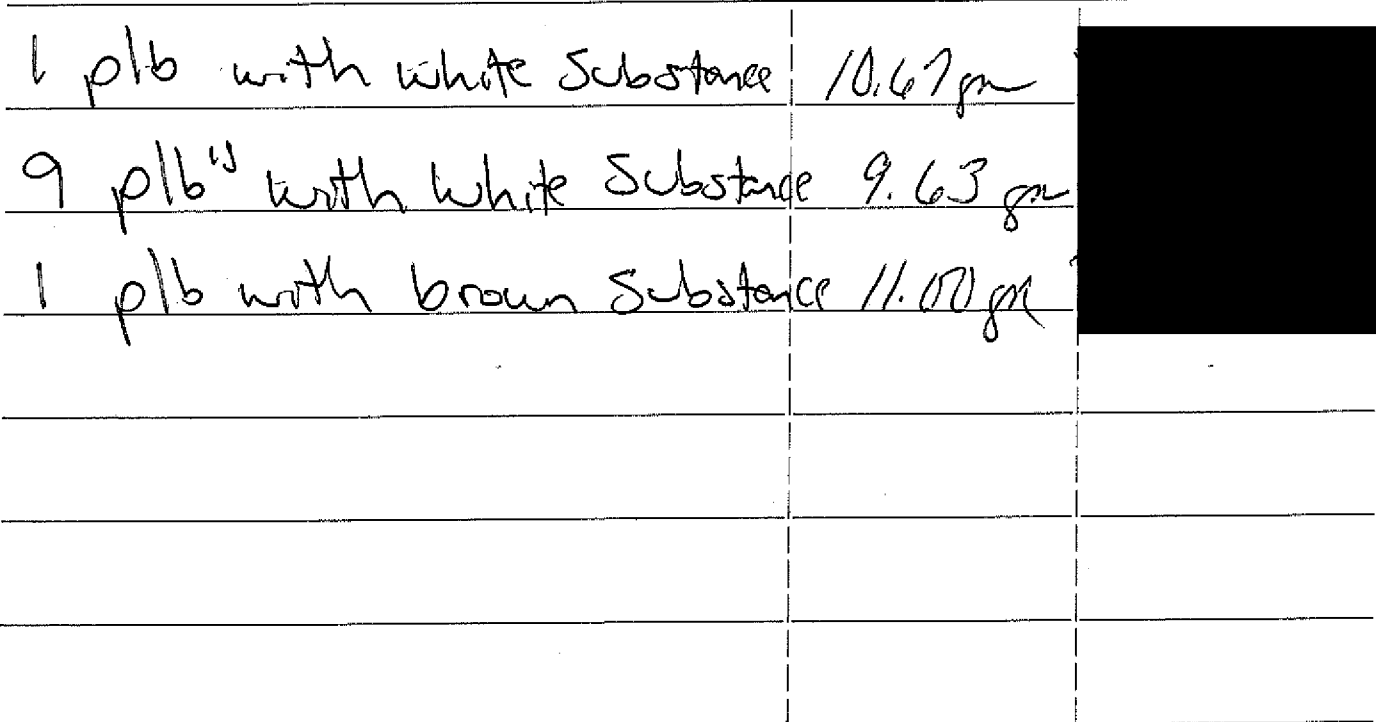 1 plb with white Substance 10.67gm
9 plb's with White Substance 9.63 gm
1 plb with brown Substance 11.00 gm